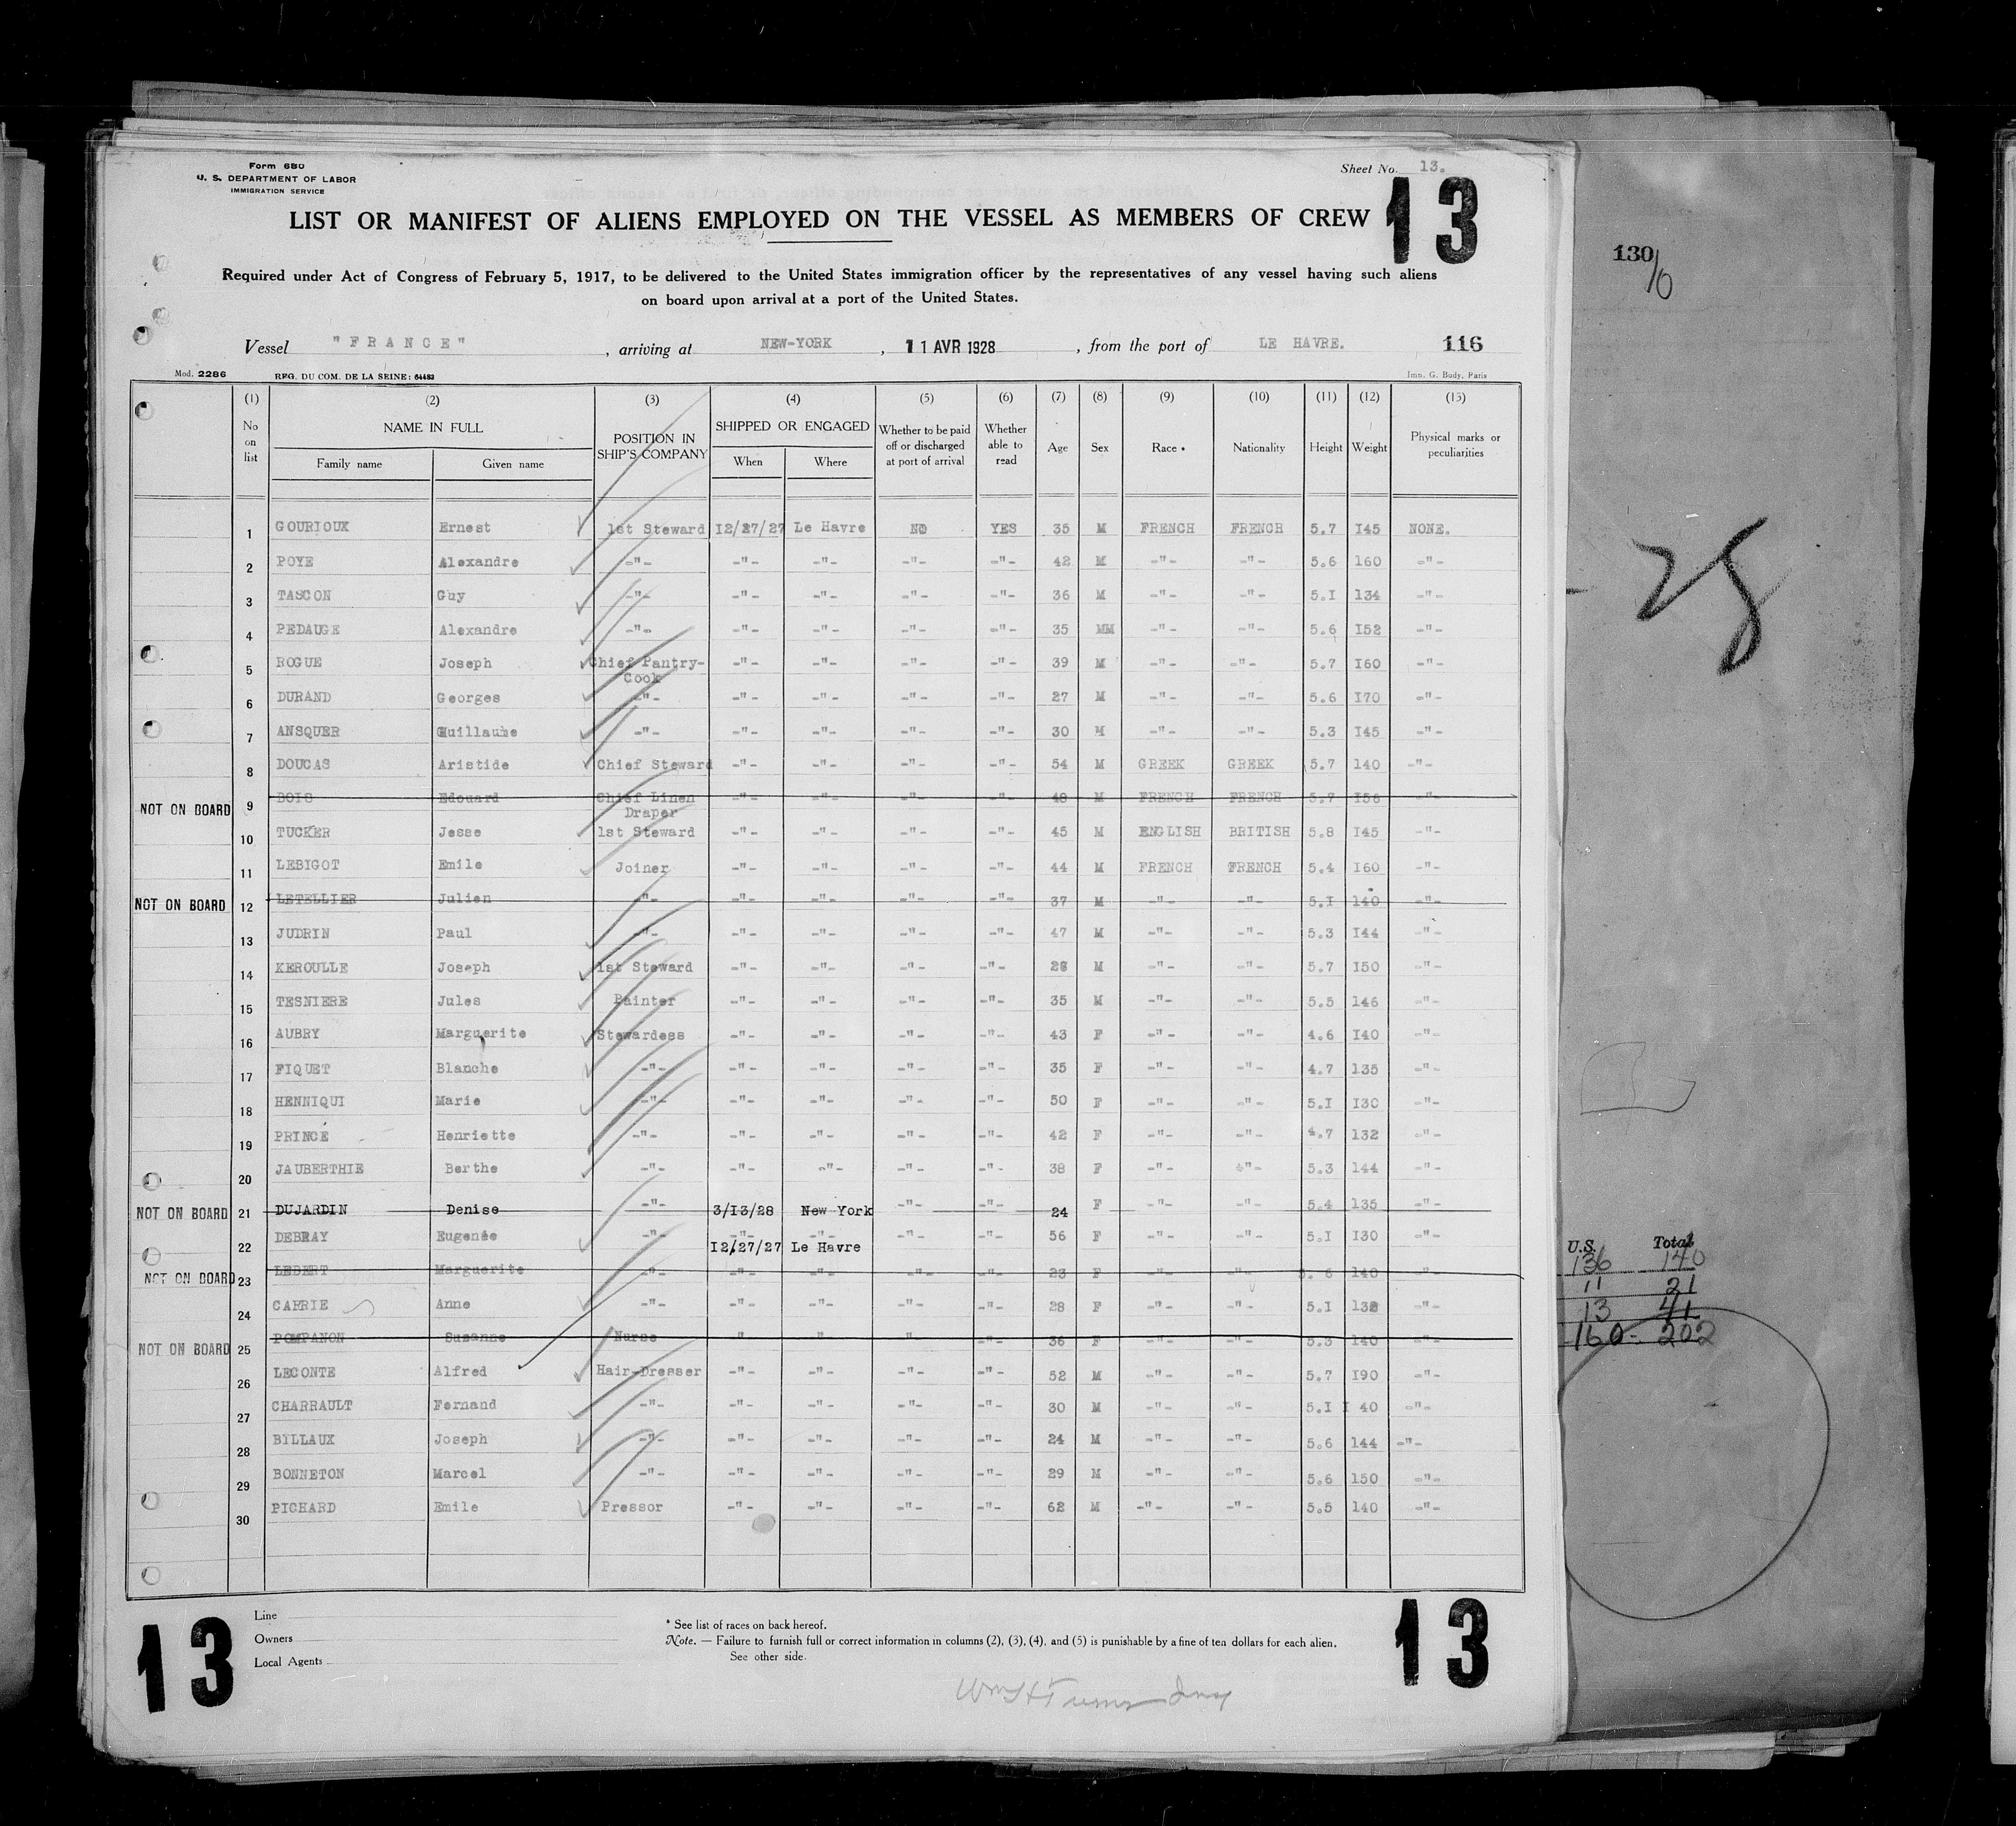 Form 680
U. S. DEPARTMENT OF LABOR
IMMIGRATION SERVICE
Sheet No. 13.
13
LIST OR MANIFEST OF ALIENS EMPLOYED ON THE VESSEL AS MEMBERS OF CREW
Required under Act of Congress of February 5, 1917, to be delivered to the United States immigration officer by the representatives of any vessel having such aliens
on board upon arrival at a port of the United States.
Vessel "FRANCE" , arriving at NEW-YORK , 11 AVR 1928 , from the port of LE HAVRE. 116
Mod. 2286 REG. DU COM. DE LA SEINE: 64483 Imp. G. Body, Paris
(1) (2) (3) (4) (5) (6) (7) (8) (9) (10) (11) (12) (13)
No on list NAME IN FULL Family name Given name POSITION IN SHIP'S COMPANY SHIPPED OR ENGAGED When Where Whether to be paid off or discharged at port of arrival Whether able to read Age Sex Race * Nationality Height Weight Physical marks or peculiarities
1 GOURIOUX Ernest 1st Steward I2/27/27 Le Havre NO YES 35 M FRENCH FRENCH 5.7 I45 NONE.
2 POYE Alexandre -"- -"- -"- -"- -"- 42 M -"- -"- 5.6 160 -"-
3 TASCON Guy -"- -"- -"- -"- -"- 36 M -"- -"- 5.I 134 -"-
4 PEDAUGE Alexandre -"- -"- -"- -"- -"- 35 MM -"- -"- 5.6 I52 -"-
5 ROGUE Joseph Chief Pantry-Cook -"- -"- -"- -"- 39 M -"- -"- 5.7 I60 -"-
6 DURAND Georges -"- -"- -"- -"- -"- 27 M -"- -"- 5.6 I70 -"-
7 ANSQUER Guillaume -"- -"- -"- -"- -"- 30 M -"- -"- 5.3 I45 -"-
8 DOUCAS Aristide Chief Steward -"- -"- -"- -"- 54 M GREEK GREEK 5.7 140 -"-
NOT ON BOARD 9 BOIS Edouard Chief Linen Draper -"- -"- -"- -"- 48 M FRENCH FRENCH 5.7 I56 -"-
10 TUCKER Jesse 1st Steward -"- -"- -"- -"- 45 M ENGLISH BRITISH 5.8 I45 -"-
11 LEBIGOT Emile Joiner -"- -"- -"- -"- 44 M FRENCH FRENCH 5.4 I60 -"-
NOT ON BOARD 12 LETELLIER Julien -"- -"- -"- -"- -"- 37 M -"- -"- 5.I 140 -"-
13 JUDRIN Paul -"- -"- -"- -"- -"- 47 M -"- -"- 5.3 I44 -"-
14 KEROULLE Joseph 1st Steward -"- -"- -"- -"- 28 M -"- -"- 5.7 I50 -"-
15 TESNIERE Jules Painter -"- -"- -"- -"- 35 M -"- -"- 5.5 146 -"-
16 AUBRY Marguerite Stewardess -"- -"- -"- -"- 43 F -"- -"- 4.6 I40 -"-
17 FIQUET Blanche -"- -"- -"- -"- -"- 35 F -"- -"- 4.7 135 -"-
18 HENNIQUI Marie -"- -"- -"- -"- -"- 50 F -"- -"- 5.I I30 -"-
19 PRINCE Henriette -"- -"- -"- -"- -"- 42 F -"- -"- 4.7 132 -"-
20 JAUBERTHIE Berthe -"- -"- -"- -"- -"- 38 F -"- -"- 5.3 144 -"-
NOT ON BOARD 21 DUJARDIN Denise -"- 3/I3/28 New York -"- -"- 24 F -"- -"- 5.4 135 -"-
22 DEBRAY Eugenée -"- I2/27/27 Le Havre -"- -"- 56 F -"- -"- 5.I I30 -"-
NOT ON BOARD 23 LEBERT Marguerite -"- -"- -"- -"- -"- 23 F -"- -"- 5.6 140 -"-
24 CARRIE Anne -"- -"- -"- -"- -"- 28 F -"- -"- 5.I 132 -"-
NOT ON BOARD 25 POMPANON Suzanne Nurse " " " -"- 36 F -"- -"- 5.3 140 -"-
26 LECONTE Alfred Hair-Dresser -"- -"- -"- -"- 52 M -"- -"- 5.7 I90 -"-
27 CHARRAULT Fernand -"- -"- -"- -"- -"- 30 M -"- -"- 5.I I 40 -"-
28 BILLAUX Joseph -"- -"- -"- -"- -"- 24 M -"- -"- 5.6 144 -"-
29 BONNETON Marcel -"- -"- -"- -"- -"- 29 M -"- -"- 5.6 150 -"-
30 PICHARD Emile Pressor -"- -"- -"- -"- 62 M -"- -"- 5.5 140 -"-
Line
Owners
Local Agents
* See list of races on back hereof.
Note. — Failure to furnish full or correct information in columns (2), (3), (4), and (5) is punishable by a fine of ten dollars for each alien.
See other side.
13
13
130
10
- 28
U.S. Total
136 140
11 21
13 41
160 - 202